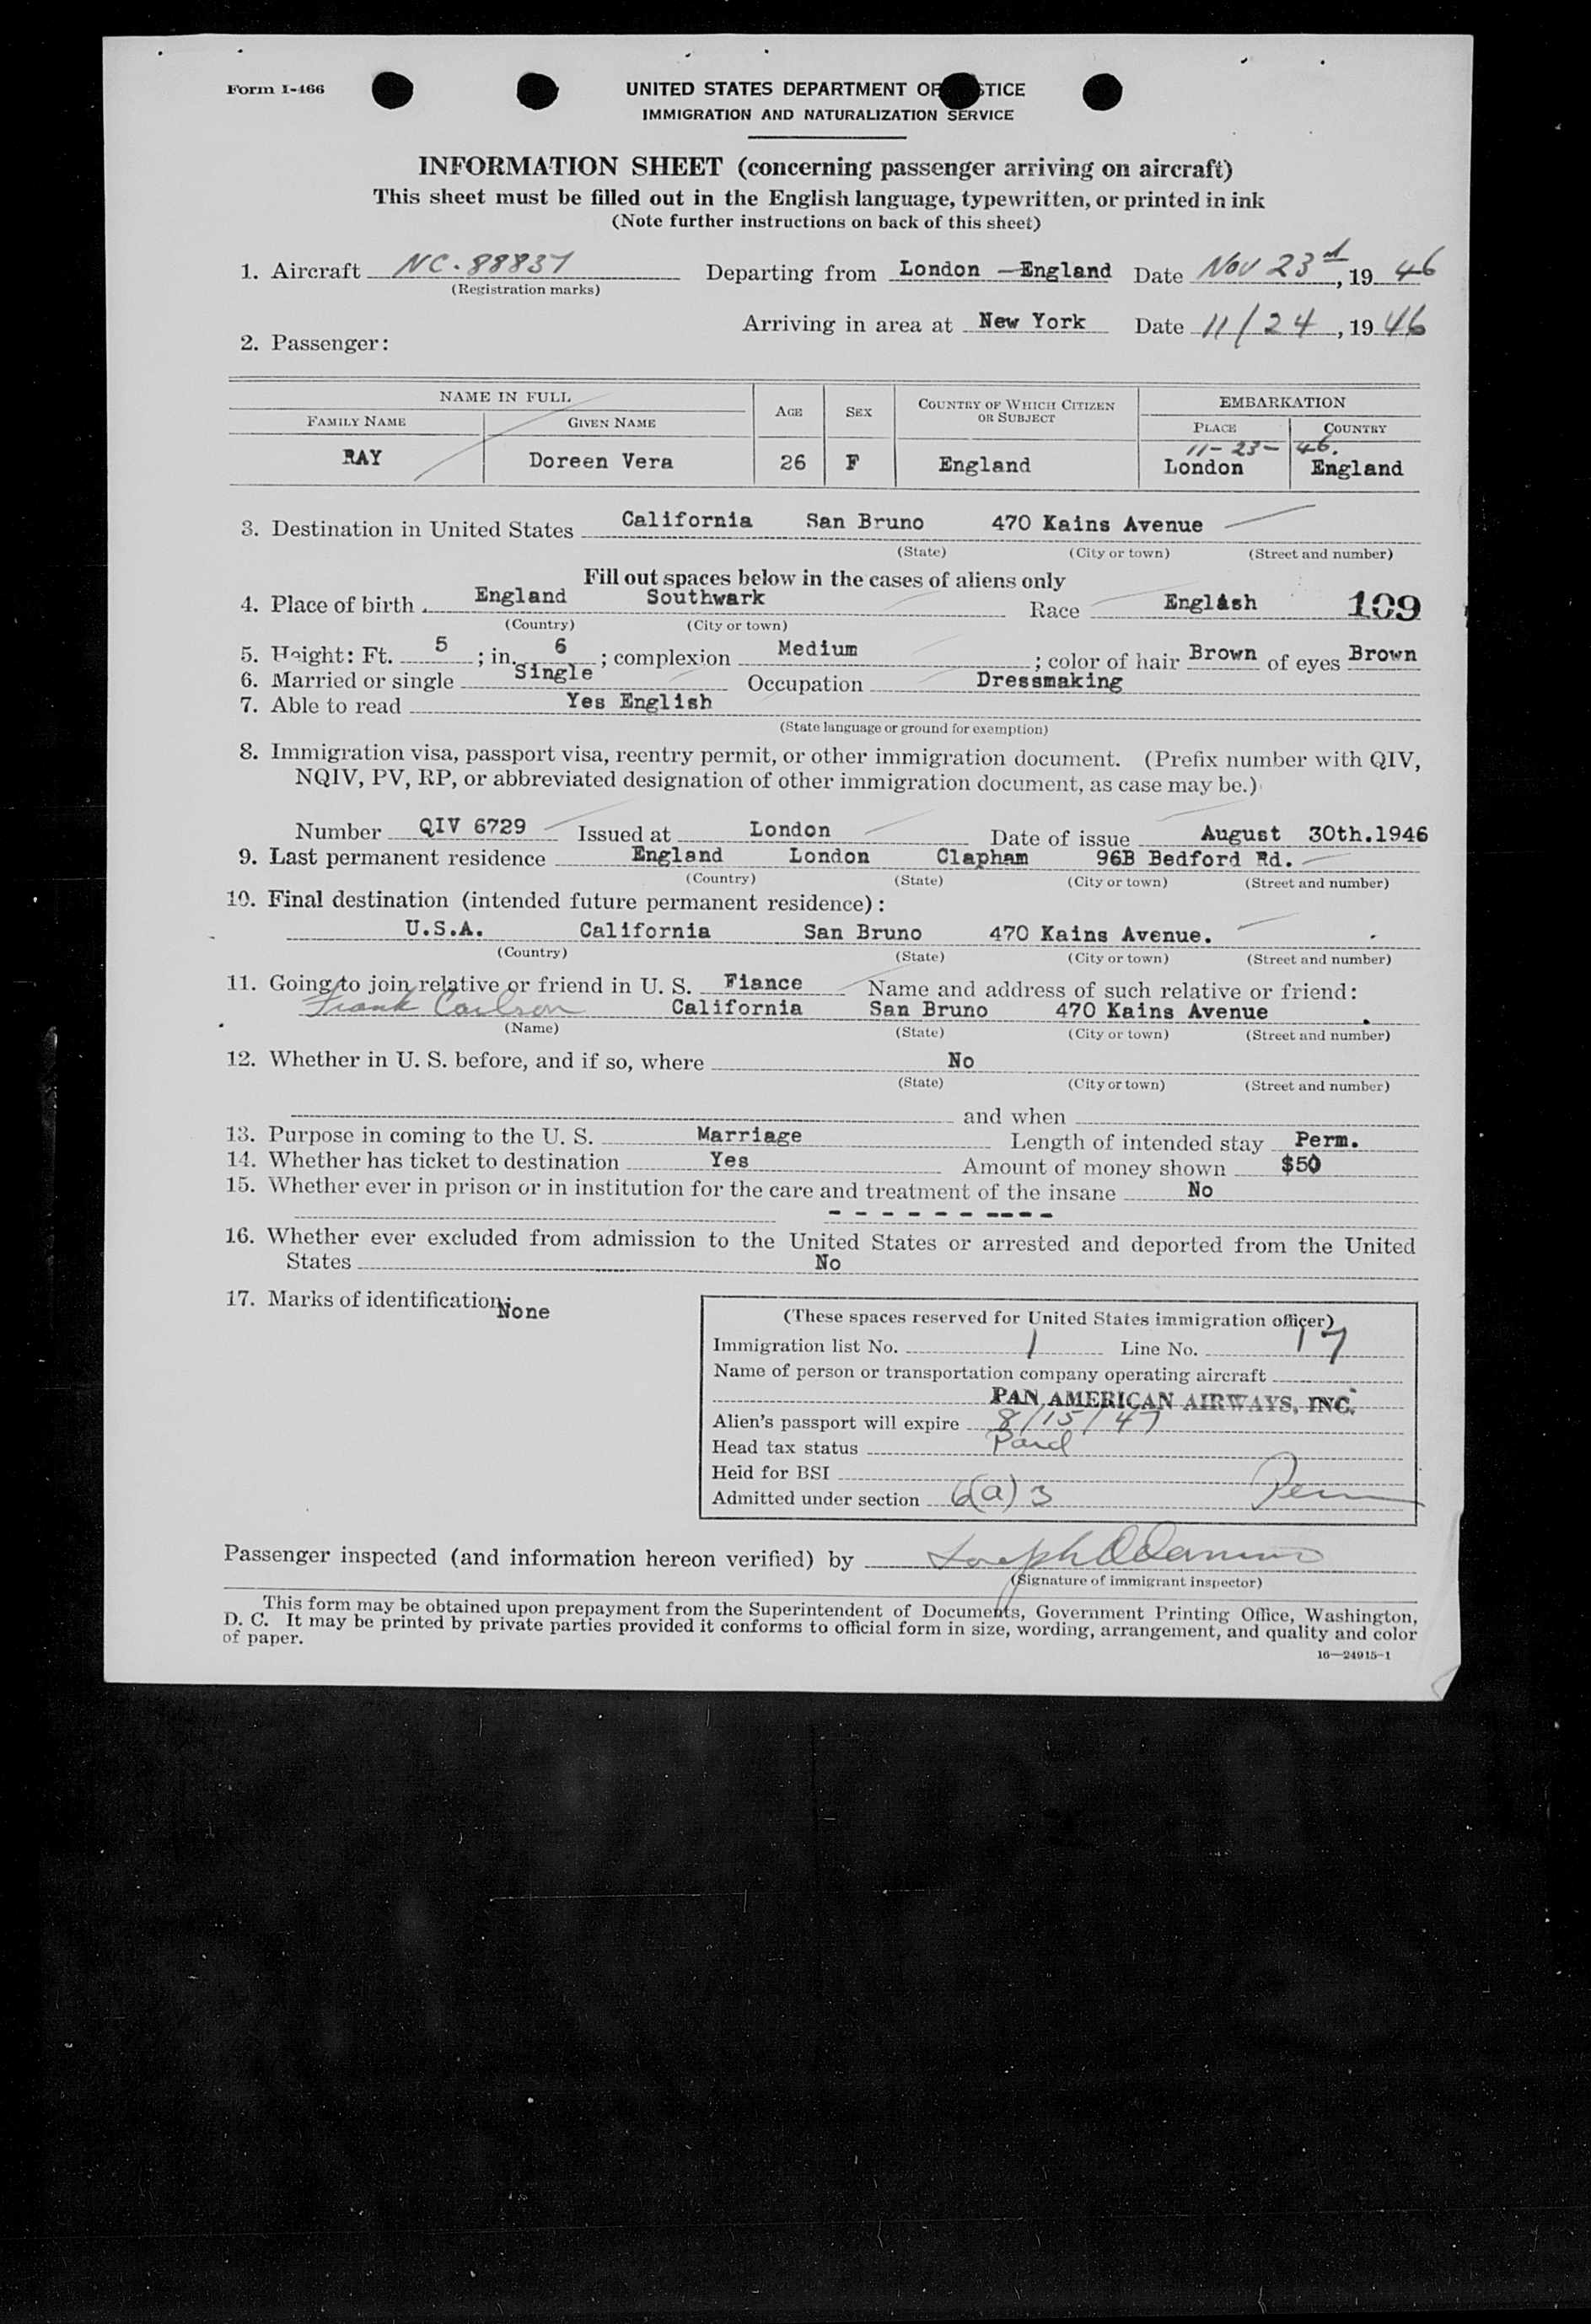 Form I-466
UNITED STATES DEPARTMENT OF JUSTICE
IMMIGRATION AND NATURALIZATION SERVICE
INFORMATION SHEET (concerning passenger arriving on aircraft)
This sheet must be filled out in the English language, typewritten, or printed in ink
(Note further instructions on back of this sheet)
1. Aircraft NC-88837 Departing from London - England Date Nov 23rd, 19 46
(Registration marks)
Arriving in area at New York Date 11/24, 19 46
2. Passenger:
NAME IN FULL AGE SEX COUNTRY OF WHICH CITIZEN OR SUBJECT EMBARKATION
FAMILY NAME GIVEN NAME PLACE COUNTRY
11-23-46.
RAY Doreen Vera 26 F England London England
3. Destination in United States California San Bruno 470 Kains Avenue
(State) (City or town) (Street and number)
Fill out spaces below in the cases of aliens only
4. Place of birth England Southwark Race English 109
(Country) (City or town)
5. Height: Ft. 5 ; in. 6 ; complexion Medium ; color of hair Brown of eyes Brown
6. Married or single Single Occupation Dressmaking
7. Able to read Yes English
(State language or ground for exemption)
8. Immigration visa, passport visa, reentry permit, or other immigration document. (Prefix number with QIV,
NQIV, PV, RP, or abbreviated designation of other immigration document, as case may be.)
Number QIV 6729 Issued at London Date of issue August 30th.1946
9. Last permanent residence England London Clapham 96B Bedford Rd.
(Country) (State) (City or town) (Street and number)
10. Final destination (intended future permanent residence):
U.S.A. California San Bruno 470 Kains Avenue.
(Country) (State) (City or town) (Street and number)
11. Going to join relative or friend in U. S. Fiance Name and address of such relative or friend:
Frank Carlson California San Bruno 470 Kains Avenue
(Name) (State) (City or town) (Street and number)
12. Whether in U. S. before, and if so, where No
(State) (City or town) (Street and number)
and when
13. Purpose in coming to the U. S. Marriage Length of intended stay Perm.
14. Whether has ticket to destination Yes Amount of money shown $50
15. Whether ever in prison or in institution for the care and treatment of the insane No
- - - - - - - - - -
16. Whether ever excluded from admission to the United States or arrested and deported from the United
States No
17. Marks of identification: None
(These spaces reserved for United States immigration officer)
Immigration list No. 1 Line No. 17
Name of person or transportation company operating aircraft
PAN AMERICAN AIRWAYS, INC.
Alien's passport will expire 8/15/47
Head tax status Paid
Held for BSI
Admitted under section 6(a)3 Perm
Passenger inspected (and information hereon verified) by Joseph
(Signature of immigrant inspector)
This form may be obtained upon prepayment from the Superintendent of Documents, Government Printing Office, Washington,
D. C. It may be printed by private parties provided it conforms to official form in size, wording, arrangement, and quality and color
of paper.
16—24915-1